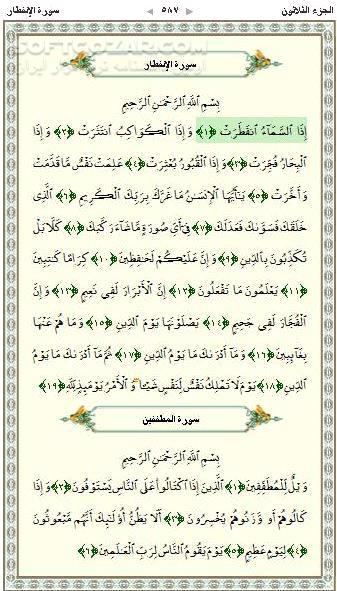 سورة الإنفطار ٥٨٧ الجزء الثلاثون
سورة الإنفطار
بِسْمِ اللَّهِ الرَّحْمَٰنِ الرَّحِيمِ
إِذَا السَّمَاءُ انفَطَرَتْ ﴿١﴾ وَإِذَا الْكَوَاكِبُ انتَثَرَتْ ﴿٢﴾ وَإِذَا
الْبِحَارُ فُجِّرَتْ ﴿٣﴾ وَإِذَا الْقُبُورُ بُعْثِرَتْ ﴿٤﴾ عَلِمَتْ نَفْسٌ مَّا قَدَّمَتْ
وَأَخَّرَتْ ﴿٥﴾ يَا أَيُّهَا الْإِنسَانُ مَا غَرَّكَ بِرَبِّكَ الْكَرِيمِ ﴿٦﴾ الَّذِي
خَلَقَكَ فَسَوَّاكَ فَعَدَلَكَ ﴿٧﴾ فِي أَيِّ صُورَةٍ مَّا شَاءَ رَكَّبَكَ ﴿٨﴾ كَلَّا بَلْ
تُكَذِّبُونَ بِالدِّينِ ﴿٩﴾ وَإِنَّ عَلَيْكُمْ لَحَافِظِينَ ﴿١٠﴾ كِرَامًا كَاتِبِينَ
﴿١١﴾ يَعْلَمُونَ مَا تَفْعَلُونَ ﴿١٢﴾ إِنَّ الْأَبْرَارَ لَفِي نَعِيمٍ ﴿١٣﴾ وَإِنَّ
الْفُجَّارَ لَفِي جَحِيمٍ ﴿١٤﴾ يَصْلَوْنَهَا يَوْمَ الدِّينِ ﴿١٥﴾ وَمَا هُمْ عَنْهَا
بِغَائِبِينَ ﴿١٦﴾ وَمَا أَدْرَاكَ مَا يَوْمُ الدِّينِ ﴿١٧﴾ ثُمَّ مَا أَدْرَاكَ مَا يَوْمُ
الدِّينِ ﴿١٨﴾ يَوْمَ لَا تَمْلِكُ نَفْسٌ لِّنَفْسٍ شَيْئًا ۖ وَالْأَمْرُ يَوْمَئِذٍ لِّلَّهِ ﴿١٩﴾
سورة المطففين
بِسْمِ اللَّهِ الرَّحْمَٰنِ الرَّحِيمِ
وَيْلٌ لِّلْمُطَفِّفِينَ ﴿١﴾ الَّذِينَ إِذَا اكْتَالُوا عَلَى النَّاسِ يَسْتَوْفُونَ ﴿٢﴾ وَإِذَا
كَالُوهُمْ أَو وَّزَنُوهُمْ يُخْسِرُونَ ﴿٣﴾ أَلَا يَظُنُّ أُولَٰئِكَ أَنَّهُم مَّبْعُوثُونَ
﴿٤﴾ لِيَوْمٍ عَظِيمٍ ﴿٥﴾ يَوْمَ يَقُومُ النَّاسُ لِرَبِّ الْعَالَمِينَ ﴿٦﴾